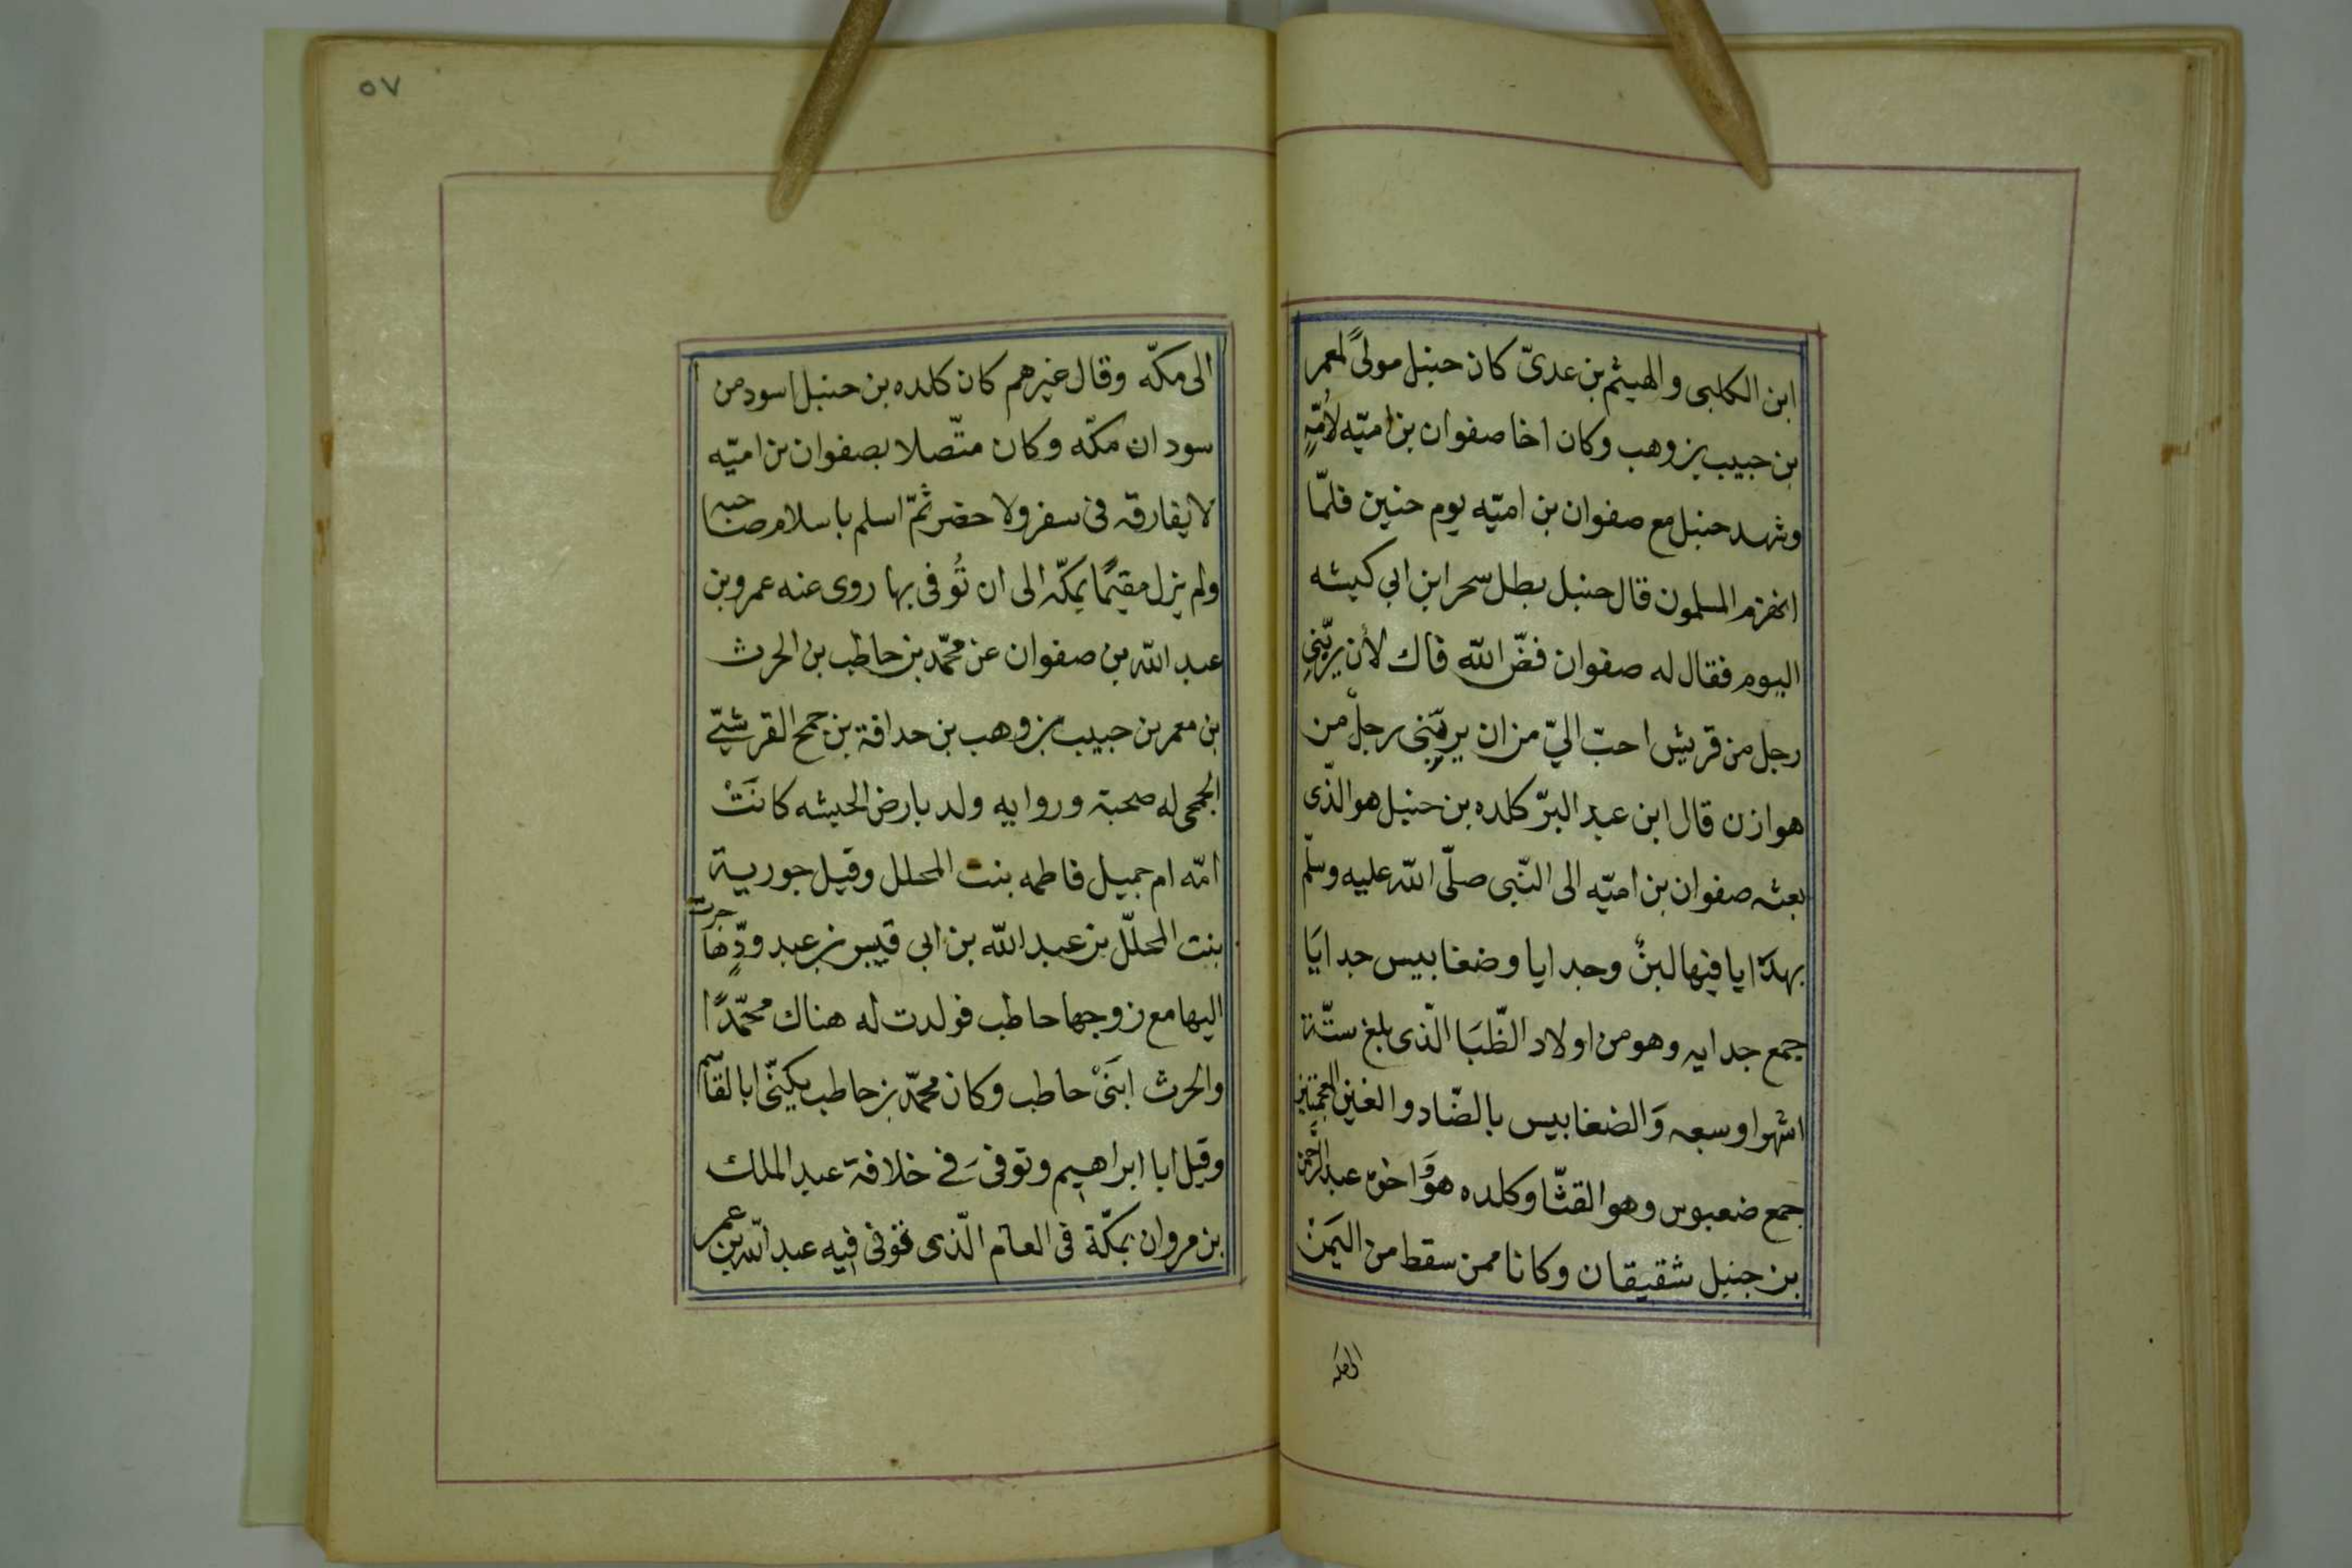 ابن الكلبى والهيثم بن عدىّ كان حنبل مولىً لمعمر
بن حبيب بن وهب وكان اخا صفوان بن اميّه لأمّهٍ
وشهد حنبل مع صفوان بن اميّه يوم حنين فلمّا
انهزم المسلمون قال حنبل بطل سحر ابن ابي كبشه
اليوم فقال له صفوان فضّ الله فاك لأن يربّنى
رجل من قريش احبّ اليّ من ان يربّنى رجل من
هوازن قال ابن عبد البرّ كلده بن حنبل هو الذّى
بعثه صفوان بن اميّه الى النّبى صلّى الله عليه وسلّم
بهدَايا فيها لبنٌ وجدايا وضغابيس جدايَا
جمع جدايه وهو من اولاد الظّبَا الّذى بلغ ستّة
اشهر او سبعه وَالضغابيس بالضّاد والغين المعجمتين
جمع ضعبوس وهو القثّا وكلده هوَ وَاخوه عبد الرّحمن
بن حنبل شقيقان وكانا ممن سقط من اليَمنْ
الى مكه
٥٧
الى مكّه وقال غيرهم كان كلده بن حنبل اسود من
سودان مكّه وكان متّصلا بصفوان بن اميّه
لا يفارقه فى سفر ولا حضر ثمّ اسلم باسلام صاحبه
ولم يزل مقيمًا بمكّه الى ان تُوفى بها روى عنه عمرو بن
عبد الله بن صفوان عن محمّد بن حاطب بن الحرث
بن معمر بن حبيب بن وهب بن حدافة بن جمح القرشىّ
الجمحى له صحبة وروايه ولد بارض الحبشه كانَتْ
امّه ام جميل فاطمه بنت المحلل وقيل جورية
بنت المحلّل بن عبد الله بن ابى قيس بن عبد ودٍّ هاجرت
اليها مع زوجها حاطب فولدت له هناك محمّدًا
والحرث ابنَىْ حاطب وكان محمّد بن حاطب يكنّى ابا القاسم
وقيل ابا ابراهيم وتوفى فى خلافة عبد الملك
بن مروان بمكّة فى العام الّذى توفى فيه عبد الله بن عمر